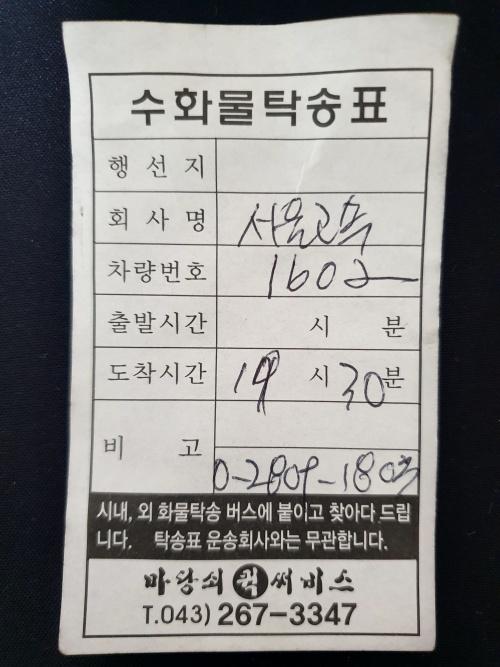 수화물탁송표
행선지
회사명 서울고속
차량번호 1602
출발시간 시 분
도착시간 19시 30분
비고
0-2809-180
시내, 외 화물탁송 버스에 붙이고 찾아다 드립
니다. 탁송표 운송회사와는 무관합니다.
마당쇠퀵써비스
T.043) 267-3347